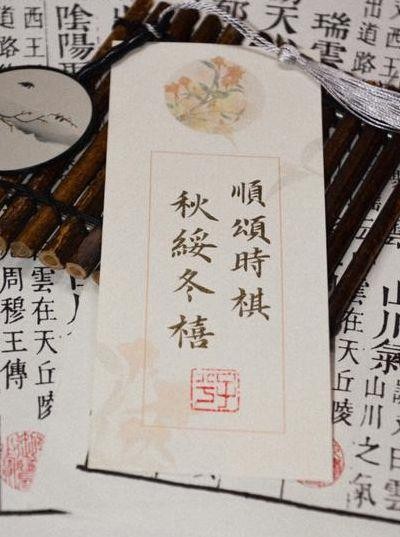 順頌時祺
秋綏冬禧
瑞雲
西王
出道路
陰陽
西王
山川氣
山川之氣
雲在天丘陵
雲在天丘陵
周穆王傳